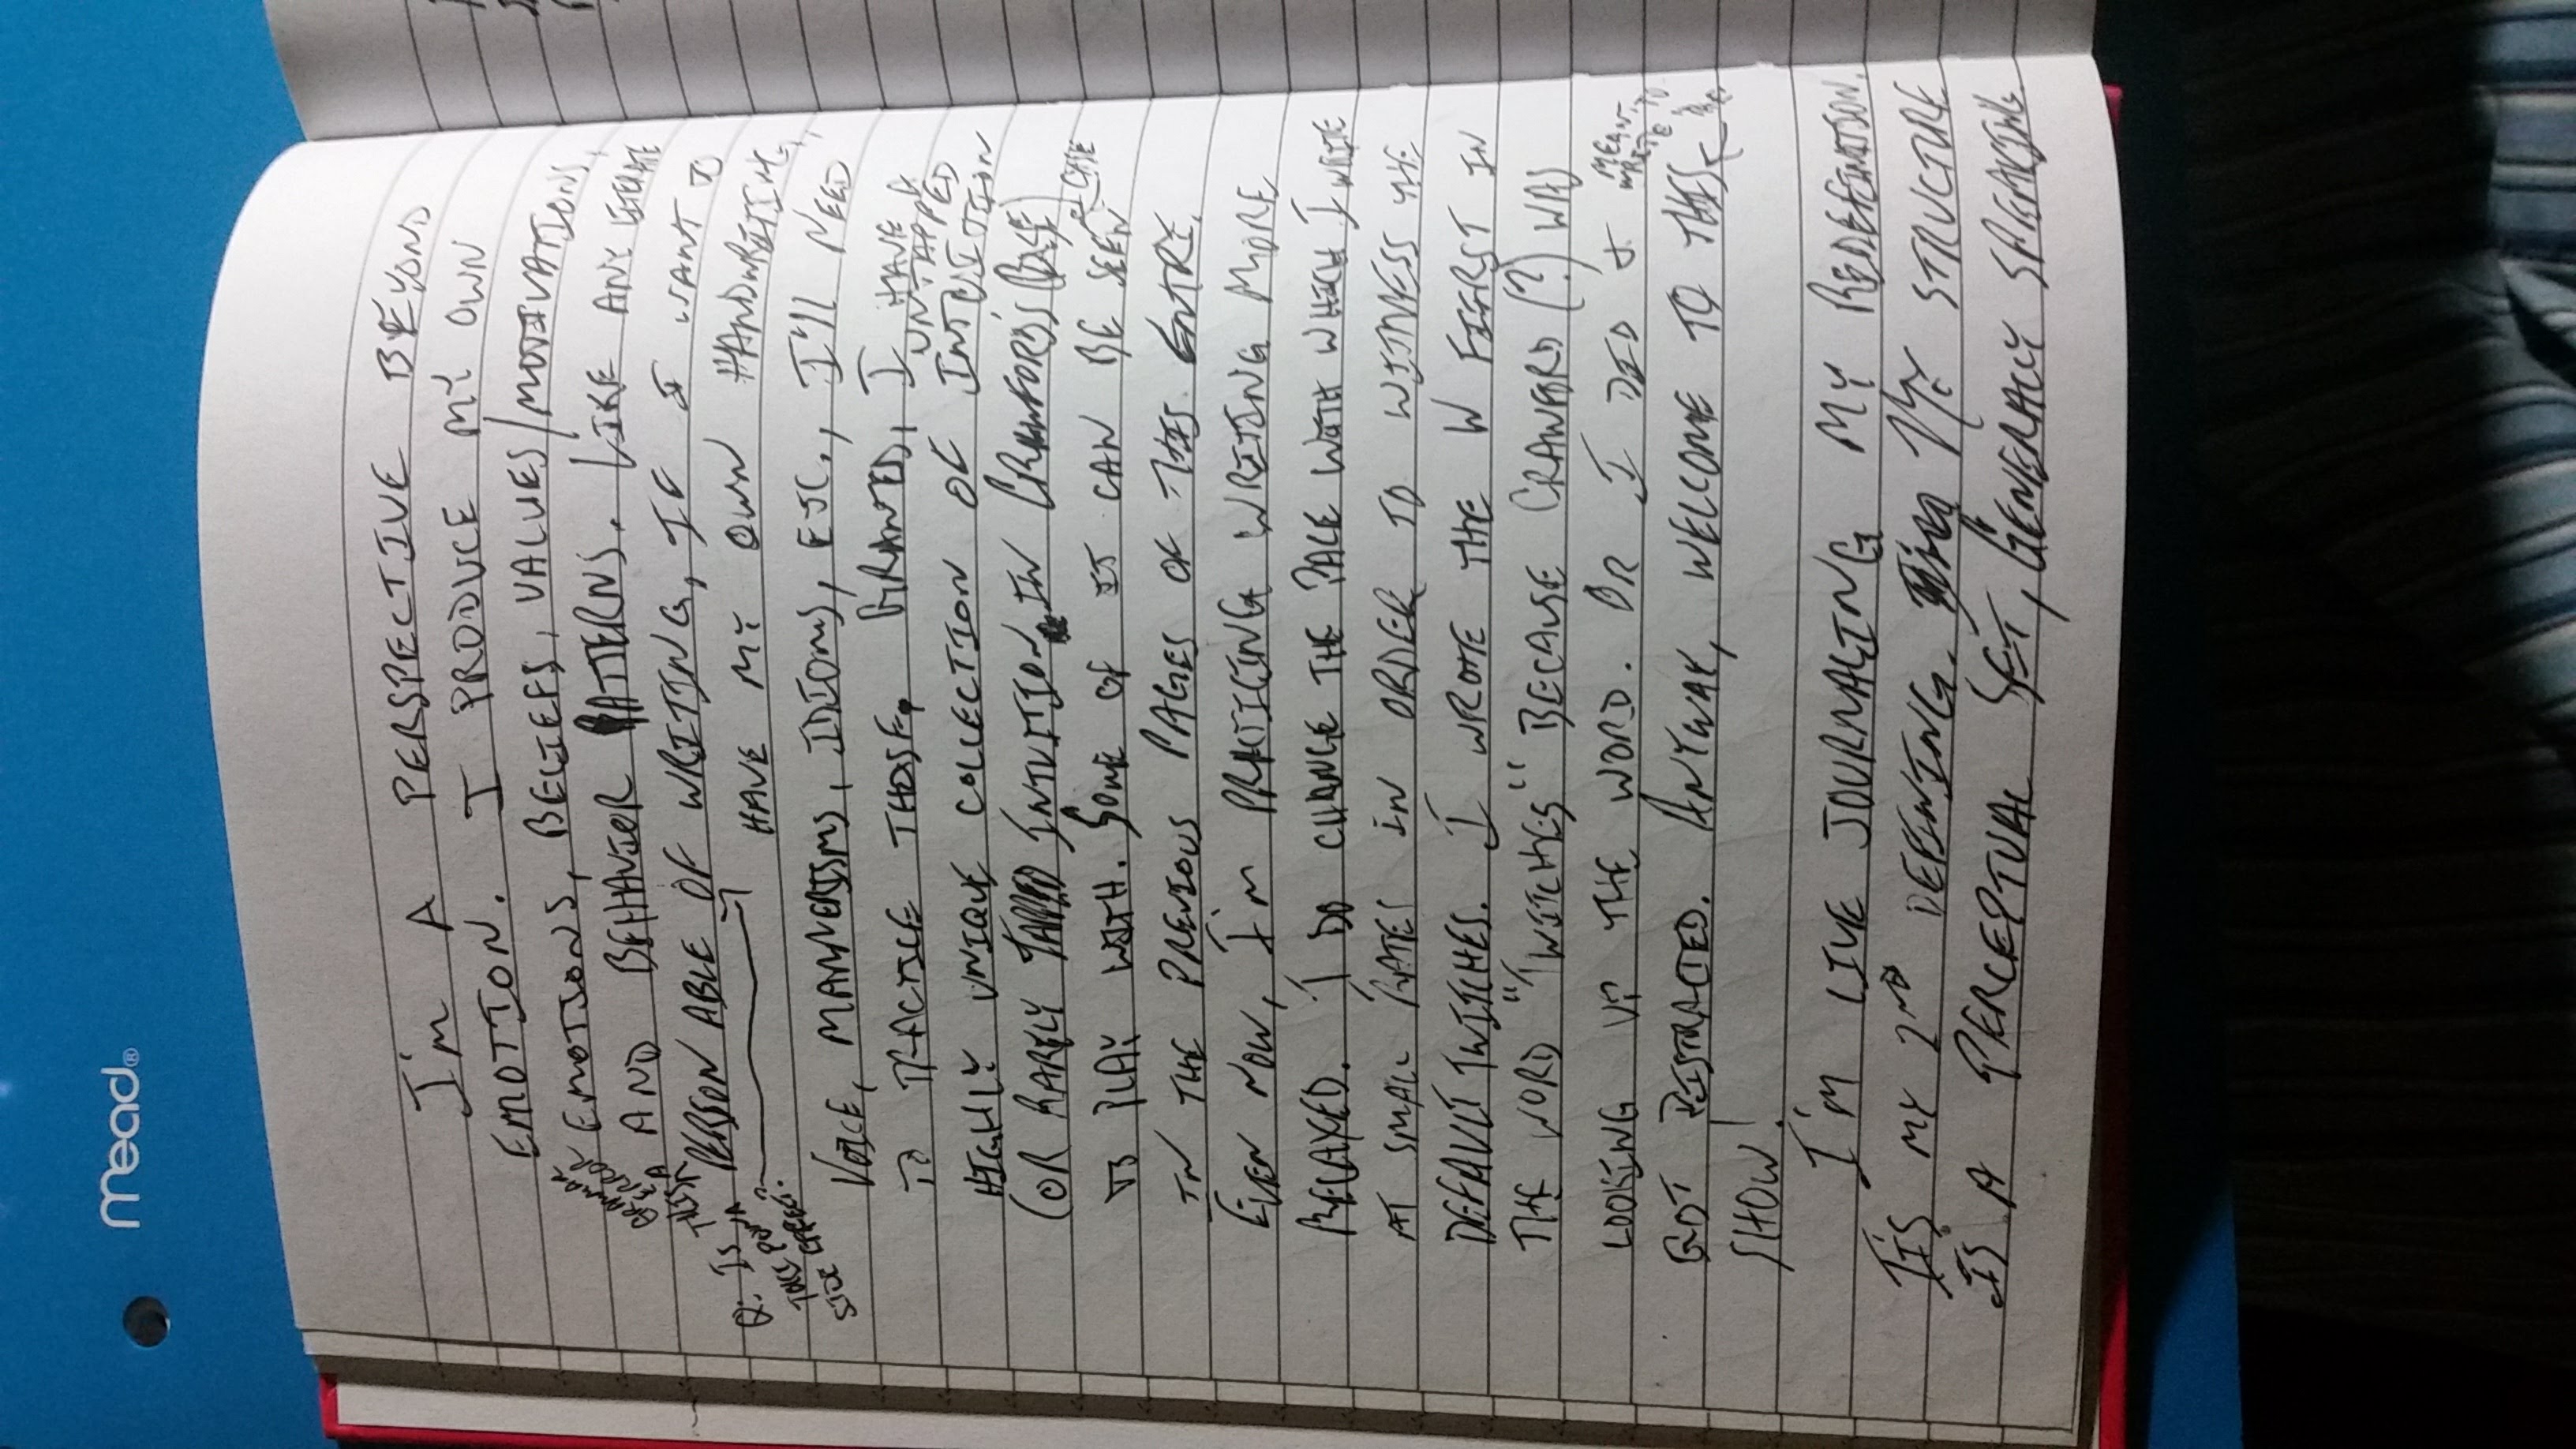 mead®
I'M A PERSPECTIVE BEYOND
EMOTION. I PRODUCE MY OWN
EMOTIONS, BELIEFS, VALUES/MOTIVATIONS,
AND BEHAVIOR PATTERNS. LIKE ANY LITERATE
PERSON ABLE OF WRITING, IF I WANT TO
HAVE MY OWN HANDWRITING,
VOICE, MANNERISMS, IDIOMS, ETC., I'll NEED
TO PRACTICE THOSE. GRANTED, I HAVE A
UNTAPPED
HIGHLY UNIQUE COLLECTION OF INTUITION
(OR RARELY TAPPED INTUITION IN CRAWFORD'S
CASE
TO PLAY WITH. SOME OF IT CAN BE SEEN
IN THE PREVIOUS PAGES OF THIS ENTRY.
EVEN NOW, I'M PRACTICING WRITING MORE
RELAXED. I DO CHANGE THE PACE WITH WHICH I WRITE
AT SMALL RATES IN ORDER TO WITNESS THE
DEFAULT TWITCHES. I WROTE THE W FIRST IN
THE WORD "TWITCHES" BECAUSE CRAWFORD (?) WAS
LOOKING UP THE WORD. OR I DID &
GOT DISTRACTED. ANYWAY, WELCOME TO THIS
SHOW!
MEANT TO
WRITE "THE"
I'M LIVE JOURNALING MY REDEFINITION.
IT'S MY 2ND DEFINING. MY STRUCTURE
IS A PERCEPTUAL SET, GENERALLY SPEAKING.
Q: IS THIS A
GRAMMAR
ERROR
SIDE EFFECT?